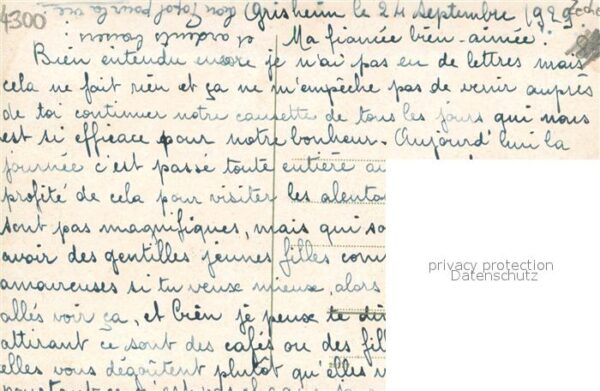 4300
Grisheim le 24 septembre 1929
Ma fiancée bien-aimée !
Bien entendu encore je n'ai pas eu de lettres mais
cela ne fait rien et ça ne m'empêche pas de venir auprès
de toi continuer notre causette de tous les jours qui nous
est si efficace pour notre bonheur. Aujourd'hui la
journée c'est passé toute entière au
profité de cela pour visiter les alenta
sont pas magnifiques, mais qui so
avoir des gentilles jeunes filles com
amoureuses si tu veux mieux, alors
allés voir ça, et bien je peux te di
attirant ce sont des cafés ou des fil
elles vous dégoûtent plutôt qu'elles
privacy protection
Datenschutz
ton Popol pour la vie
et ardents baisers